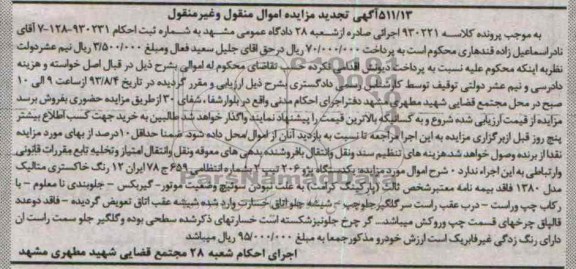 ۵۱۱/۱۳آگهی تجدید مزایده اموال منقول وغیرمنقول
به موجب پرونده کلاسه ۹۳۰۲۲۱ اجرائی صادره ازشعبه ۲۸ دادگاه عمومی مشهد به شماره ثبت احکام ۹۳۰۲۳۱-۱۲۸-۷ آقای
نادراسماعیل زاده قندهاری محکوم است به پرداخت ۷۰/۰۰۰/۰۰۰ ریال درحق اقای جلیل سعید فعال ومبلغ ۳/۵۰۰/۰۰۰ ریال نیم عشردولت
نظربه اینکه محکوم علیه نسبت به پرداخت دیون اقدامی نکرده حسب تقاضای محکوم له اموالی بشرح ذیل در قبال اصل خواسته و هزینه
دادرسی و نیم عشر دولتی توقیف توسط کارشناس رسمی دادگستری بشرح ذیل ارزیابی و مقرر گردیده در تاریخ ۹۳/۸/۴ ازساعت ۹ الی ۱۰
صبح در محل مجتمع قضایی شهید مطهری مشهد دفتراجرای احکام مدنی واقع در بلوارشفا، شفای ۳۰ ازطریق مزایده حضوری بفروش برسد
مزایده از قیمت ارزیابی شده شروع و به کسانیکه بالاترین قیمت را پیشنهاد نمایند واگذار خواهد شد طالبین به خرید جهت کسب اطلاع بیشتر
پنج روز قبل ازبرگزاری مزایده به این اجرا مراجعه تا نسبت به بازدید آنان از اموال/محل داده شود. ضمنا حداقل ۱۰درصد از بهای مورد مزایده
نقدا از برنده وصول خواهد شدهزینه های تنظیم سند ونقل وانتقال بافروشنده بدهی های معوقه ونقل وانتقال امتیاز وتخلیه تابع مقررات قانونی
وارتباطی به این اجراء ندارد - شرح اموال مورد مزایده: یکدستگاه پژو ۴۰۵ تیپ به شماره انتظامی ۶۵۹ ج ۷۸ ایران ۱۲ رنگ خاکستری متالیک
مدل ۱۳۸۰ فاقد بیمه نامه معتبرشخص ثالث (پارکینگ کرامت) به علت نبودن سوئیچ وضعیت موتور- گیربکس - جلوبندی نا معلوم - با
رکاب چپ وراست - درب عقب راست سرگلگیرجلوچپ - شیشه جلو اتاق خسارت وارد شده شیشه عقب اتاق تعویض گردیده - فاقد دوعدد
قالپاق چرخهای قسمت چپ وروکش میباشد... گر چرخ جلونیزشکسته است خسارتهای ذکرشده سطحی بوده وگلگیر جلو سمت راست آن
دارای رنگ زدگی غیرفابریک است ارزش خودرو مذکورجمعا به مبلغ ۹۵/۰۰۰/۰۰۰ ریال میباشد
اجرای احکام شعبه ۲۸ مجتمع قضایی شهید مطهری مشهد